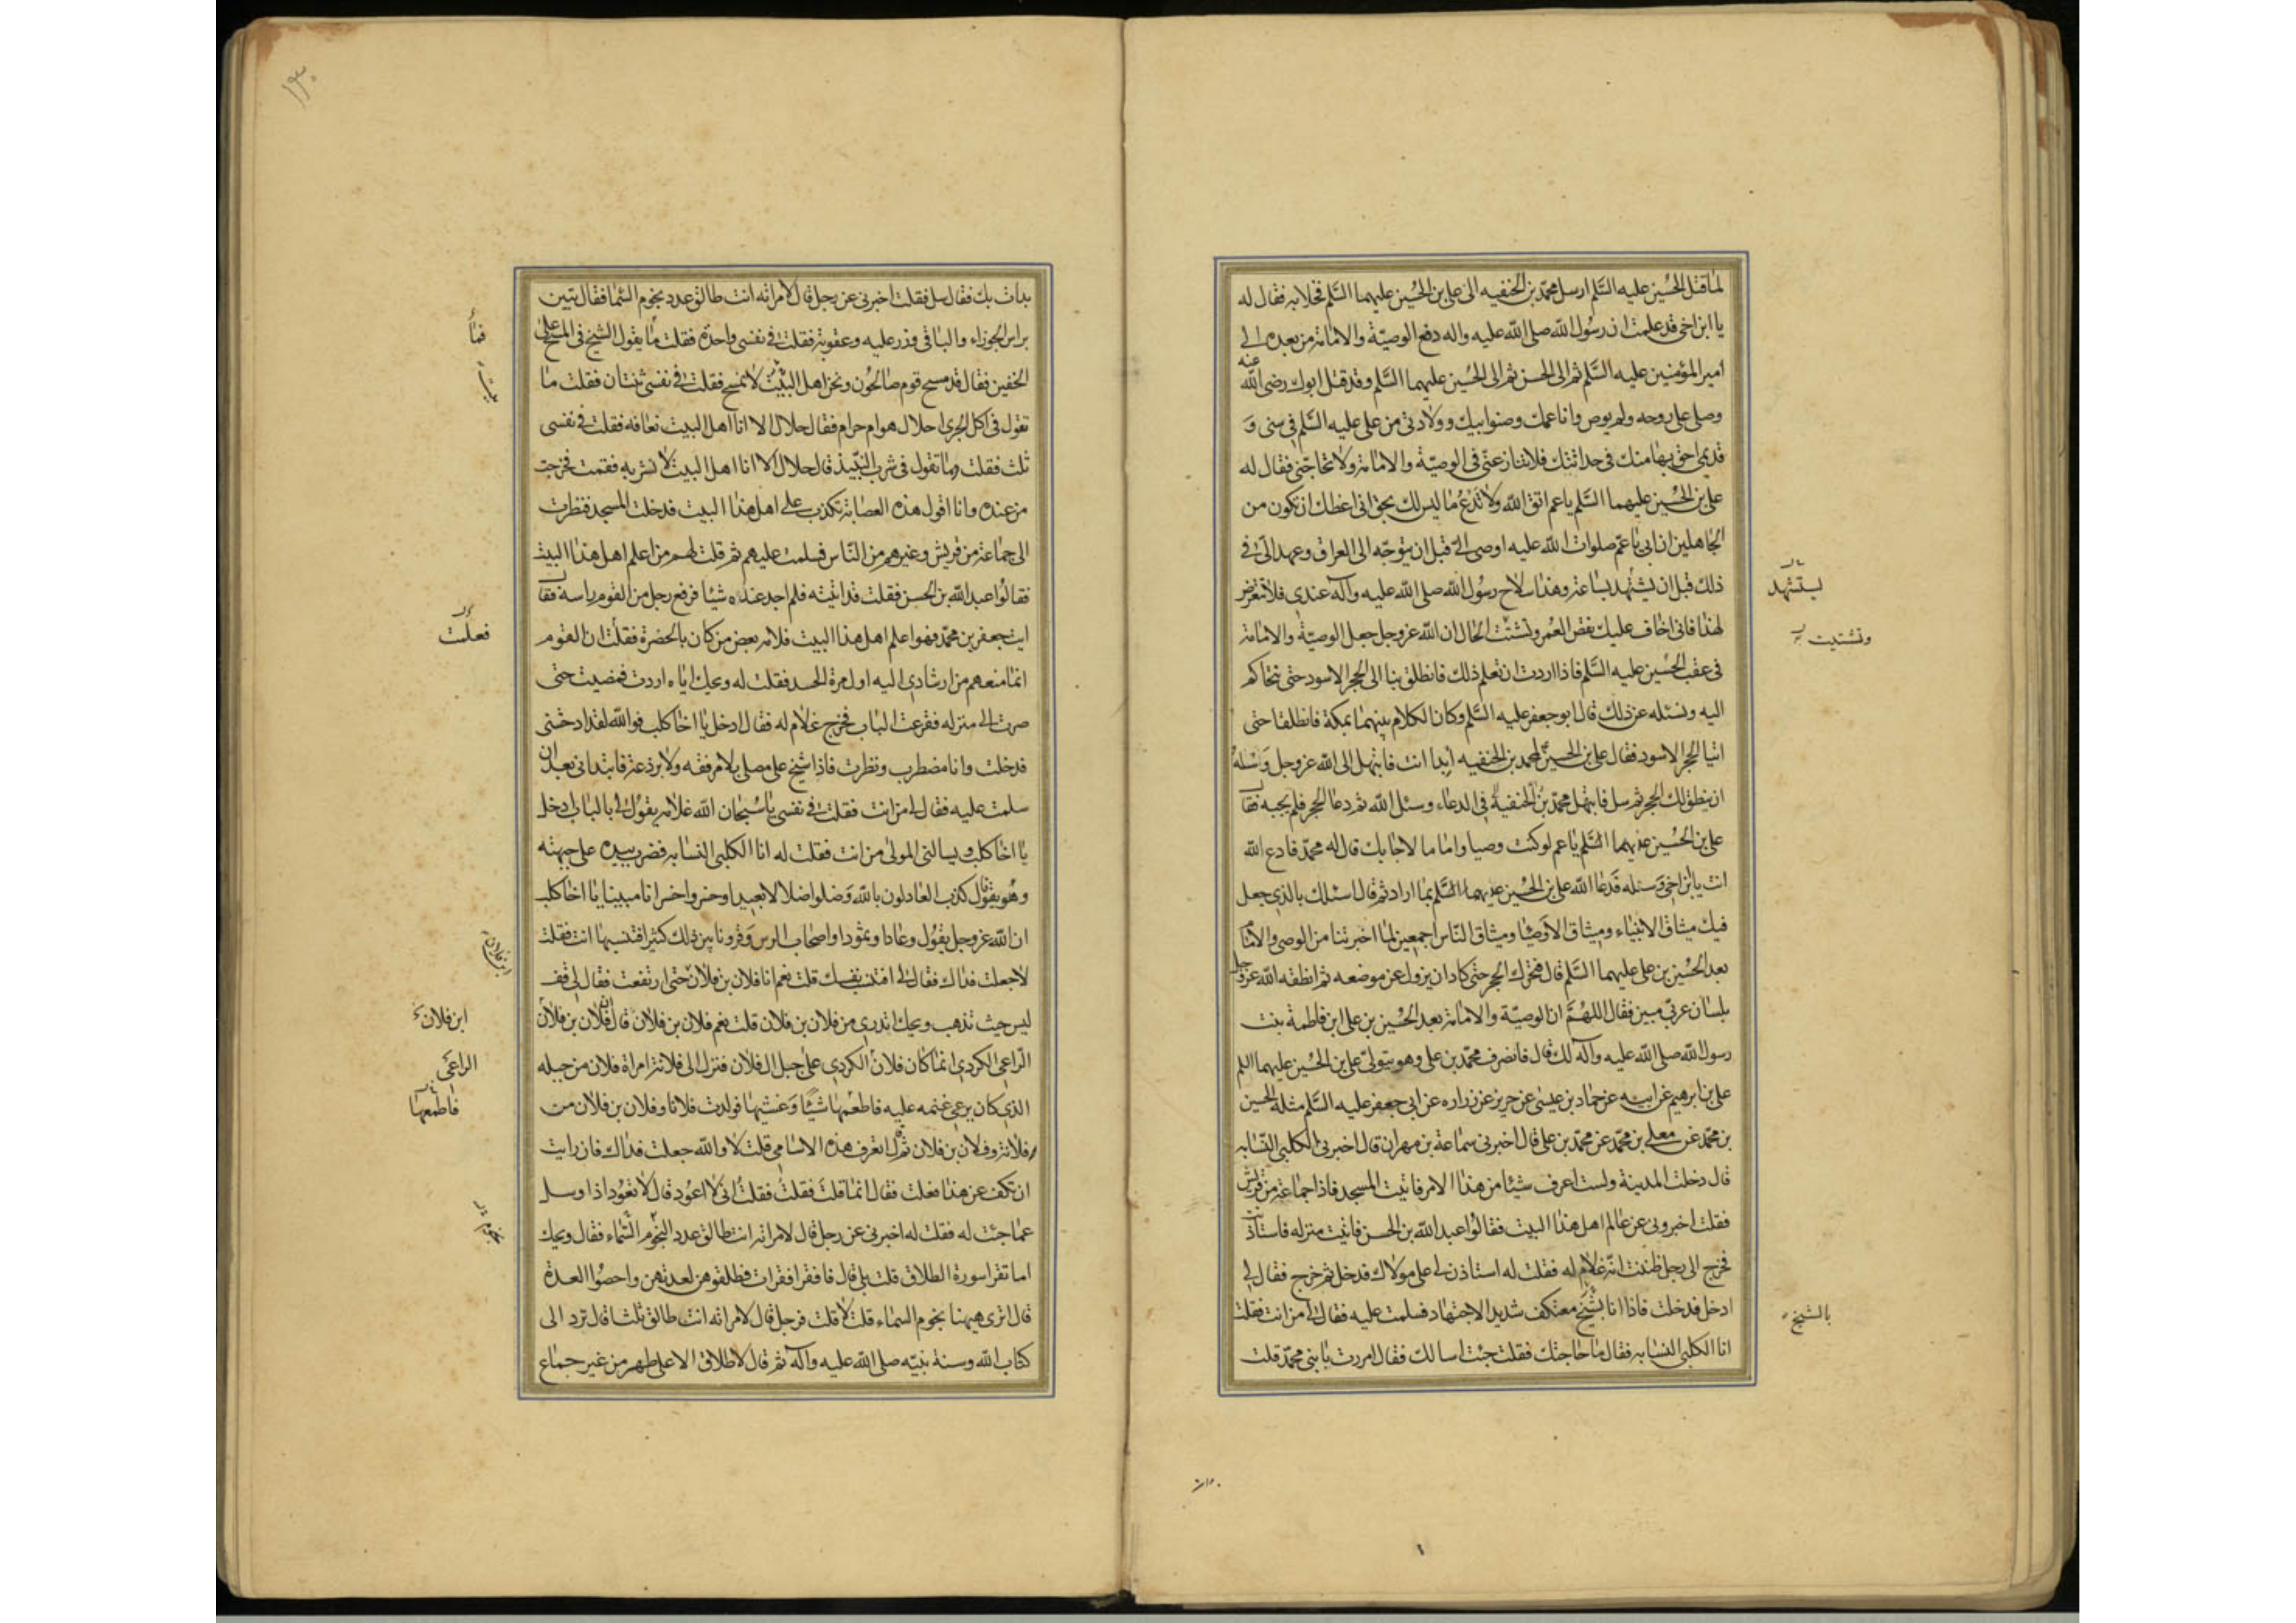 لما قتل الحسين عليه السلم ارسل محمد بن الحنفيه الى على بن الحسين عليهما السلم فخلا به فقال له
يا ابن اخى قد علمت ان رسول الله صلى الله عليه واله دفع الوصية والامامة من بعده الى
امير المؤمنين عليه السلم ثم الى الحسن ثم الى الحسين عليهما السلم وقد قتل ابوك رضى الله عنه
وصلى على روحه ولم يوص وانا عمك وصنو ابيك وولادتى من على عليه السلم فى سنى و
قدمى احق بها منك فى حداثتك فلا تنازعنى فى الوصية والامامة ولا تحاجنى فقال له
على بن الحسين عليهما السلم يا عم اتق الله ولا تدع ما ليس لك بحق انى اعظك ان تكون من
الجاهلين ان ابى يا عم صلوات الله عليه اوصى الى قبل ان يتوجه الى العراق وعهد الى فى
ذلك قبل ان يشتهد بساعة وهذا سلاح رسول الله صلى الله عليه وآله عندى فلا تتعرض
لهذا فانى اخاف عليك نقص العمر وتشتت الحال ان الله عز وجل جعل الوصية والامامة
فى عقب الحسين عليه السلم فاذا اردت ان تعلم ذلك فانطلق بنا الى الحجر الاسود حتى نتحاكم
اليه ونسئله عن ذلك قال ابو جعفر عليه السلم وكان الكلام بينهما بمكة فانطلقا حتى
اتيا الحجر الاسود فقال على بن الحسين لمحمد بن الحنفيه ابدا انت فابتهل الى الله عز وجل وسئله
ان ينطق لك الحجر ثم سل فابتهل محمد بن الحنفية فى الدعاء وسئل الله ثم دعا الحجر فلم يجبه فقال
على بن الحسين عليهما السلم يا عم لو كنت وصيا واماما لاجابك قال له محمد فادع الله
انت يابن اخى وسئله فدعا الله على بن الحسين عليهما السلم بما اراد ثم قال اسئلك بالذى جعل
فيك ميثاق الانبياء وميثاق الاوصيا وميثاق الناس اجمعين لما اخبرتنا من الوصى والامام
بعد الحسين بن على عليهما السلم قال فتحرك الحجر حتى كاد ان يزول عن موضعه ثم انطقه الله عز وجل
بلسان عربى مبين فقال اللهم ان الوصية والامامة بعد الحسين بن على ابن فاطمة بنت
رسول الله صلى الله عليه وآله لك قال فانصرف محمد بن على وهو يتولى على بن الحسين عليهما السلم
على بن ابرهيم عن ابيه عن حماد بن عيسى عن حريز عن زراره عن ابى جعفر عليه السلم مثله الحسين
بن محمد عن معلى بن محمد عن محمد بن على قال اخبرنى سماعة بن مهران قال اخبرنى الكلبى النسابه
قال دخلت المدينة ولست اعرف شيئا من هذا الامر فاتيت المسجد فاذا جماعة من قريش
فقلت اخبرونى عن عالم اهل هذا البيت فقالوا عبد الله بن الحسن فاتيت منزله فاستاذنت
فخرج الى رجل ظننت انه غلام له فقلت له استاذن لى على مولاك فدخل ثم خرج فقال لى
ادخل فدخلت فاذا انا بشيخ معتكف شديد الاجتهاد فسلمت عليه فقال لى من انت فقلت
انا الكلبى النسابه فقال ما حاجتك فقلت جئت اسالك فقال امررت بابنى محمد قلت
ليستشهد
وتشتيت
بالشيخ
بدات بك فقال سل فقلت اخبرنى عن رجل قال لامراته انت طالق عدد نجوم السما فقال تبين
براس الجوزاء والباقى وزر عليه وعقوبة فقلت فى نفسى واحدة فقلت ما يقول الشيخ فى المسح على
الخفين فقال قد مسح قوم صالحون ونحن اهل البيت لا نمسح فقلت فى نفسى ثنتان فقلت ما
تقول فى اكل الجرى احلال هو ام حرام فقال حلال الا انا اهل البيت نعافه فقلت فى نفسى
ثلث فقلت وما تقول فى شرب النبيذ قال حلال الا انا اهل البيت لا نشربه فقمت فخرجت
من عنده وانا اقول هذه العصابة تكذب على اهل هذا البيت فدخلت المسجد فنظرت
الى جماعة من قريش وغيرهم من الناس فسلمت عليهم ثم قلت لهم من اعلم اهل هذا البيت
فقالوا عبد الله بن الحسن فقلت قد اتيته فلم اجد عنده شيئا فرفع رجل من القوم راسه فقال
ايت جعفر بن محمد فهو اعلم اهل هذا البيت فلامه بعض من كان بالحضرة فقلت ان القوم
انما منعهم من ارشادى اليه اول مرة الحسد فقلت له ويحك اياه اردت فمضيت حتى
صرت الى منزله فقرعت الباب فخرج غلام له فقال ادخل يا اخا كلب فوالله لقد ادهشنى
فدخلت وانا مضطرب ونظرت فاذا شيخ على مصلى بلا مرفقه ولا برذعة فابتدانى بعد ان
سلمت عليه فقال لى من انت فقلت فى نفسى يا سبحان الله غلامه يقول لى بالباب ادخل
يا اخا كلب ويسالنى المولى من انت فقلت له انا الكلبى النسابه فضرب بيده على جبهته
وهو يقول كذب العادلون بالله وضلوا ضلالا بعيدا وخسروا خسرانا مبينا يا اخا كلب
ان الله عز وجل يقول وعادا وثمودا واصحاب الرس وقرونا بين ذلك كثيرا افتنسبها انت فقلت
لا جعلت فداك فقال لى افتنسب نفسك قلت نعم انا فلان بن فلان حتى ارتفعت فقال لى قف
ليس حيث تذهب ويحك اتدرى من فلان بن فلان قلت نعم فلان بن فلان قال ان فلان بن فلان
الراعى الكردى انما كان فلان الكردى على جبل ال فلان فنزل الى فلانة امراة فلان من جبله
الذى كان يرعى غنمه عليه فاطعمها شيئا وغشيها فولدت فلانا وفلان بن فلان من
فلانة وفلان بن فلان ثم قال اتعرف هذه الاسامى قلت لا والله جعلت فداك فان رايت
ان تكف عن هذا فعلت فقال انما قلت فقلت فقلت انى لا اعود قال لا نعود اذا وسل
عما جئت له فقلت له اخبرنى عن رجل قال لامراته انت طالق عدد النجوم السماء فقال ويحك
اما تقرا سورة الطلاق قلت بلى قال فاقرا فقرات فطلقوهن لعدتهن واحصوا العدة
قال اترى هيهنا نجوم السماء قلت لا قلت فرجل قال لامراته انت طالق ثلثا قال ترد الى
كتاب الله وسنة نبيه صلى الله عليه وآله ثم قال لا طلاق الا على طهر من غير جماع
فما
فعلمت
ابن فلان
ابن فلان
الراعى
فاطعمها